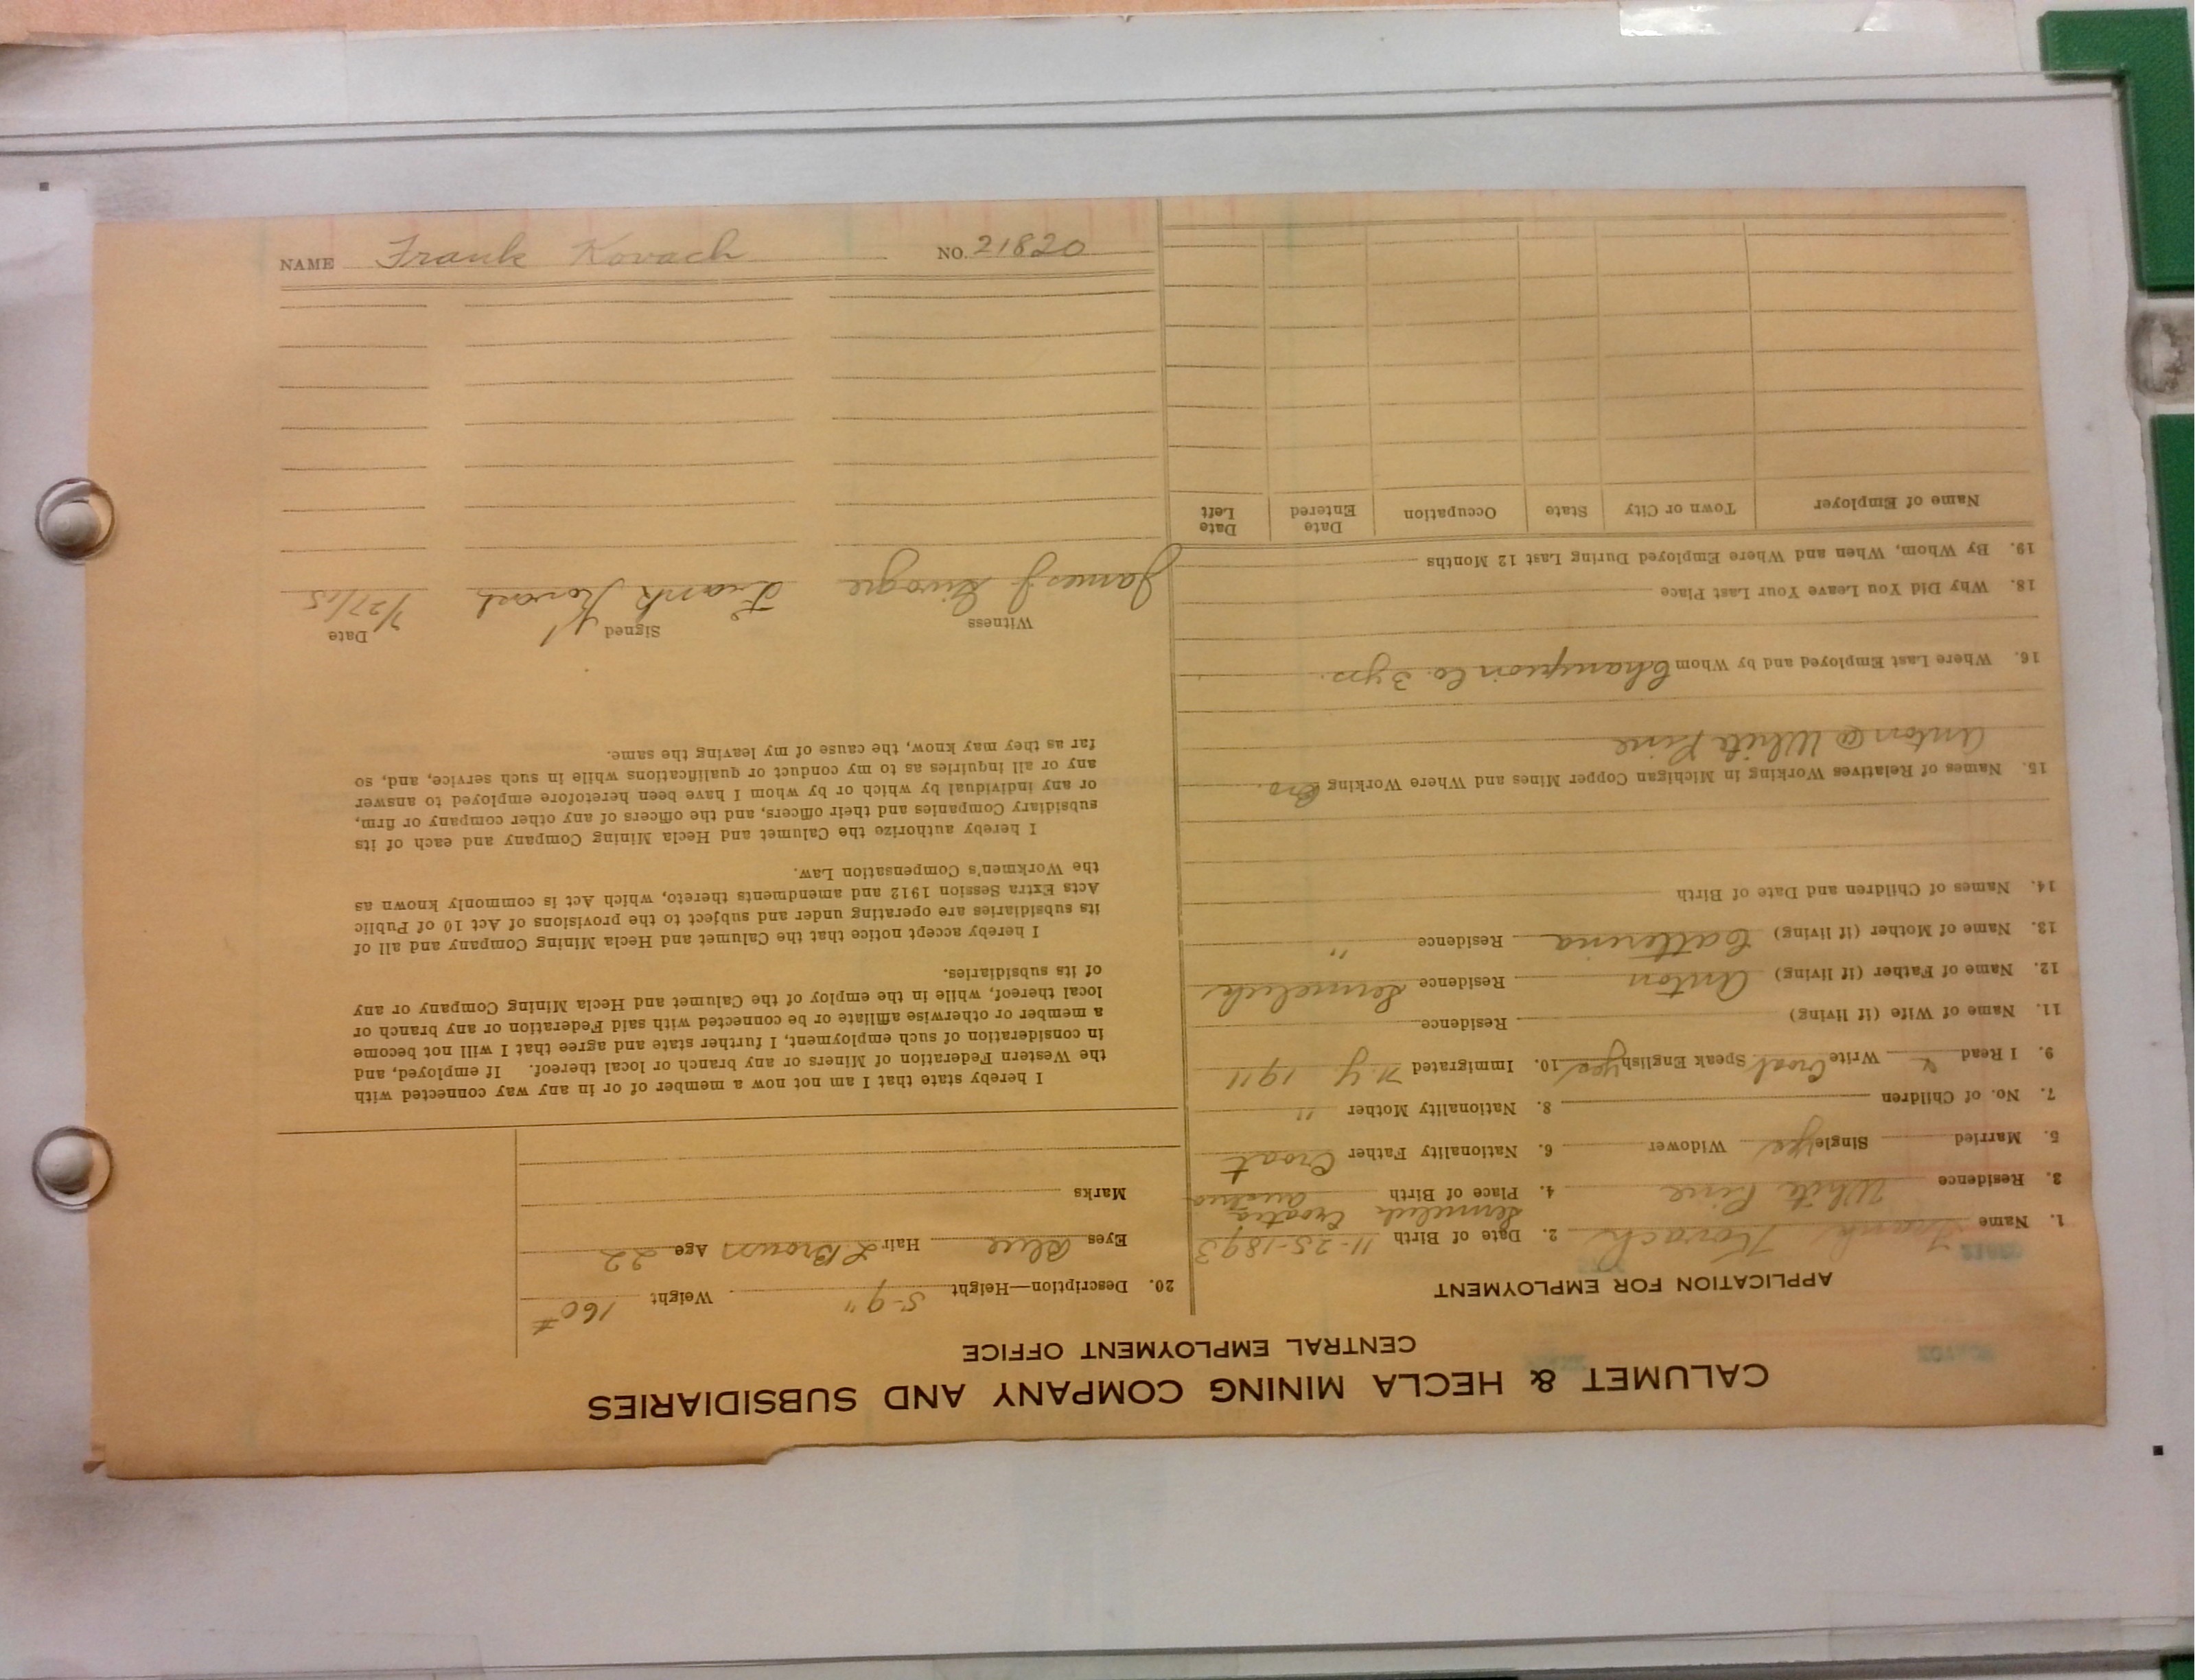 CALUMET & HECLA MINING COMPANY AND SUBSIDIARIES
CENTRAL EMPLOYMENT OFFICE
APPLICATION FOR EMPLOYMENT
1. Name Frank Kovach 2. Date of Birth 11-25-1893
Croatia
3. Residence White Pine 4. Place of Birth Austria
5. Married Single yes Widower 6. Nationality Father Croat
7. No. of Children 8. Nationality Mother "
9. I Read " Write Croat Speak English yes 10. Immigrated N.Y 1911
11. Name of Wife (if living) Residence
12. Name of Father (if living) Anton Residence
13. Name of Mother (if living) Catterina Residence "
14. Names of Children and Date of Birth
15. Names of Relatives Working in Michigan Copper Mines and Where Working Bro.
Anton @ White Pine
16. Where Last Employed and by Whom Champion Co. 3 yrs.
18. Why Did You Leave Your Last Place
19. By Whom, When and Where Employed During Last 12 Months
Name of Employer Town or City State Occupation Date Entered Date Left
20. Description—Height 5-9" Weight 160#
Eyes Blue Hair L Brown Age 22
Marks
I hereby state that I am not now a member of or in any way connected with
the Western Federation of Miners or any branch or local thereof. If employed, and
in consideration of such employment, I further state and agree that I will not become
a member or otherwise affiliate or be connected with said Federation or any branch or
local thereof, while in the employ of the Calumet and Hecla Mining Company or any
of its subsidiaries.
I hereby accept notice that the Calumet and Hecla Mining Company and all of
its subsidiaries are operating under and subject to the provisions of Act 10 of Public
Acts Extra Session 1912 and amendments thereto, which Act is commonly known as
the Workmen's Compensation Law.
I hereby authorize the Calumet and Hecla Mining Company and each of its
subsidiary Companies and their officers, and the officers of any other company or firm,
or any individual by which or by whom I have been heretofore employed to answer
any or all inquiries as to my conduct or qualifications while in such service, and, so
far as they may know, the cause of my leaving the same.
Witness Signed Date
James J Frank Kovach
NAME Frank Kovach NO. 21820